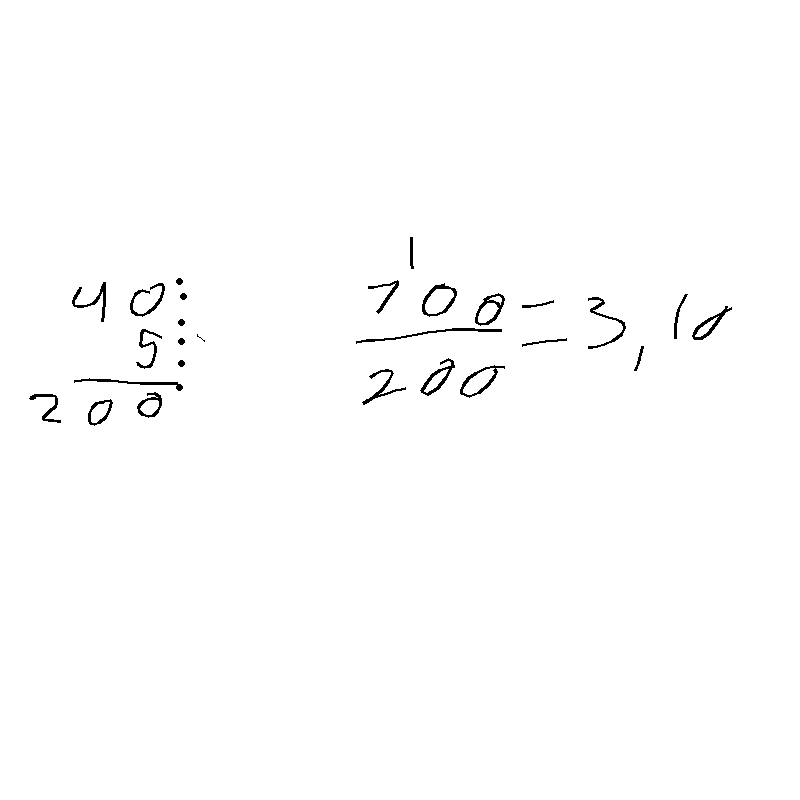 40
5
200
1
700
200
= 3,10